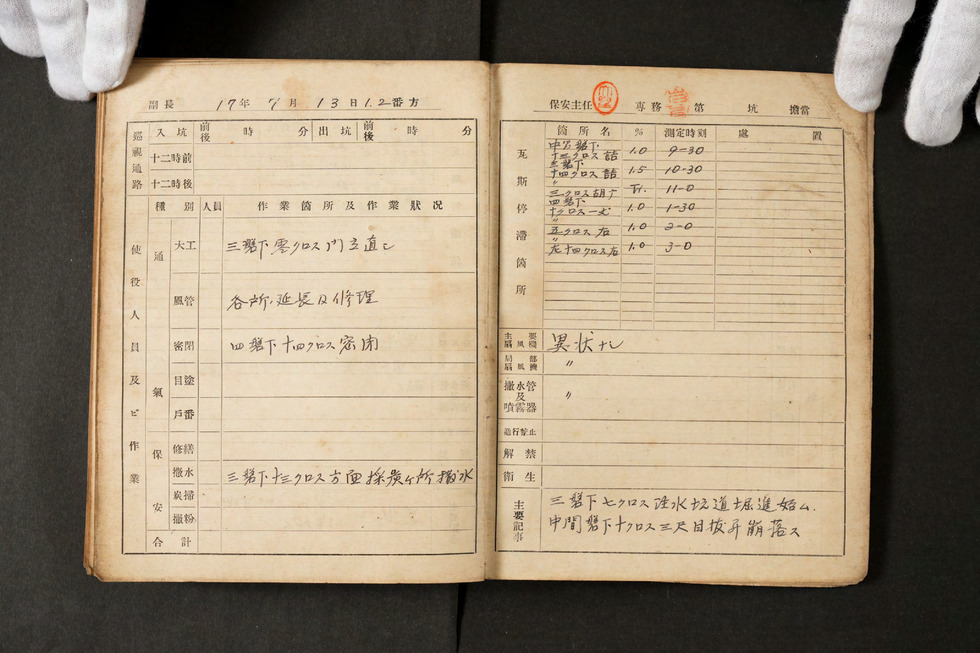 副長 17年7月13日1.2番方
巡視通路 入坑 前後 時 分 出坑 前後 時 分
十二時前
十二時後
使役人員及ビ作業
種別 人員 作業箇所及作業狀況
通氣
大工 三盤下零クロス門立直シ
風管 各所延長及修理
密閉 四盤下十四クロス密閉
目塗
戶番
保安
修繕
撒水 三盤下十三クロス方面採炭ヶ所撒水
炭掃
撒粉
合計
保安主任 専務 第 坑 擔當
瓦斯停滯箇所
箇所名 % 測定時刻 處置
十三クロス詰 1.0 9-30
三盤下
十四クロス詰 1.5 10-30
〃
三クロス Tr. 11-0
四盤下
1.0 1-30
〃
五クロス右 1.0 2-0
〃
左十四クロス右 1.0 3-0
主要扇風機 異状ナシ
局部扇風機 〃
撒水管及噴霧器 〃
進行禁止
解禁
衛生
主要記事
三盤下七クロス 水坑道堀進始ム.
中間盤下十クロス三尺目抜昇崩落ス